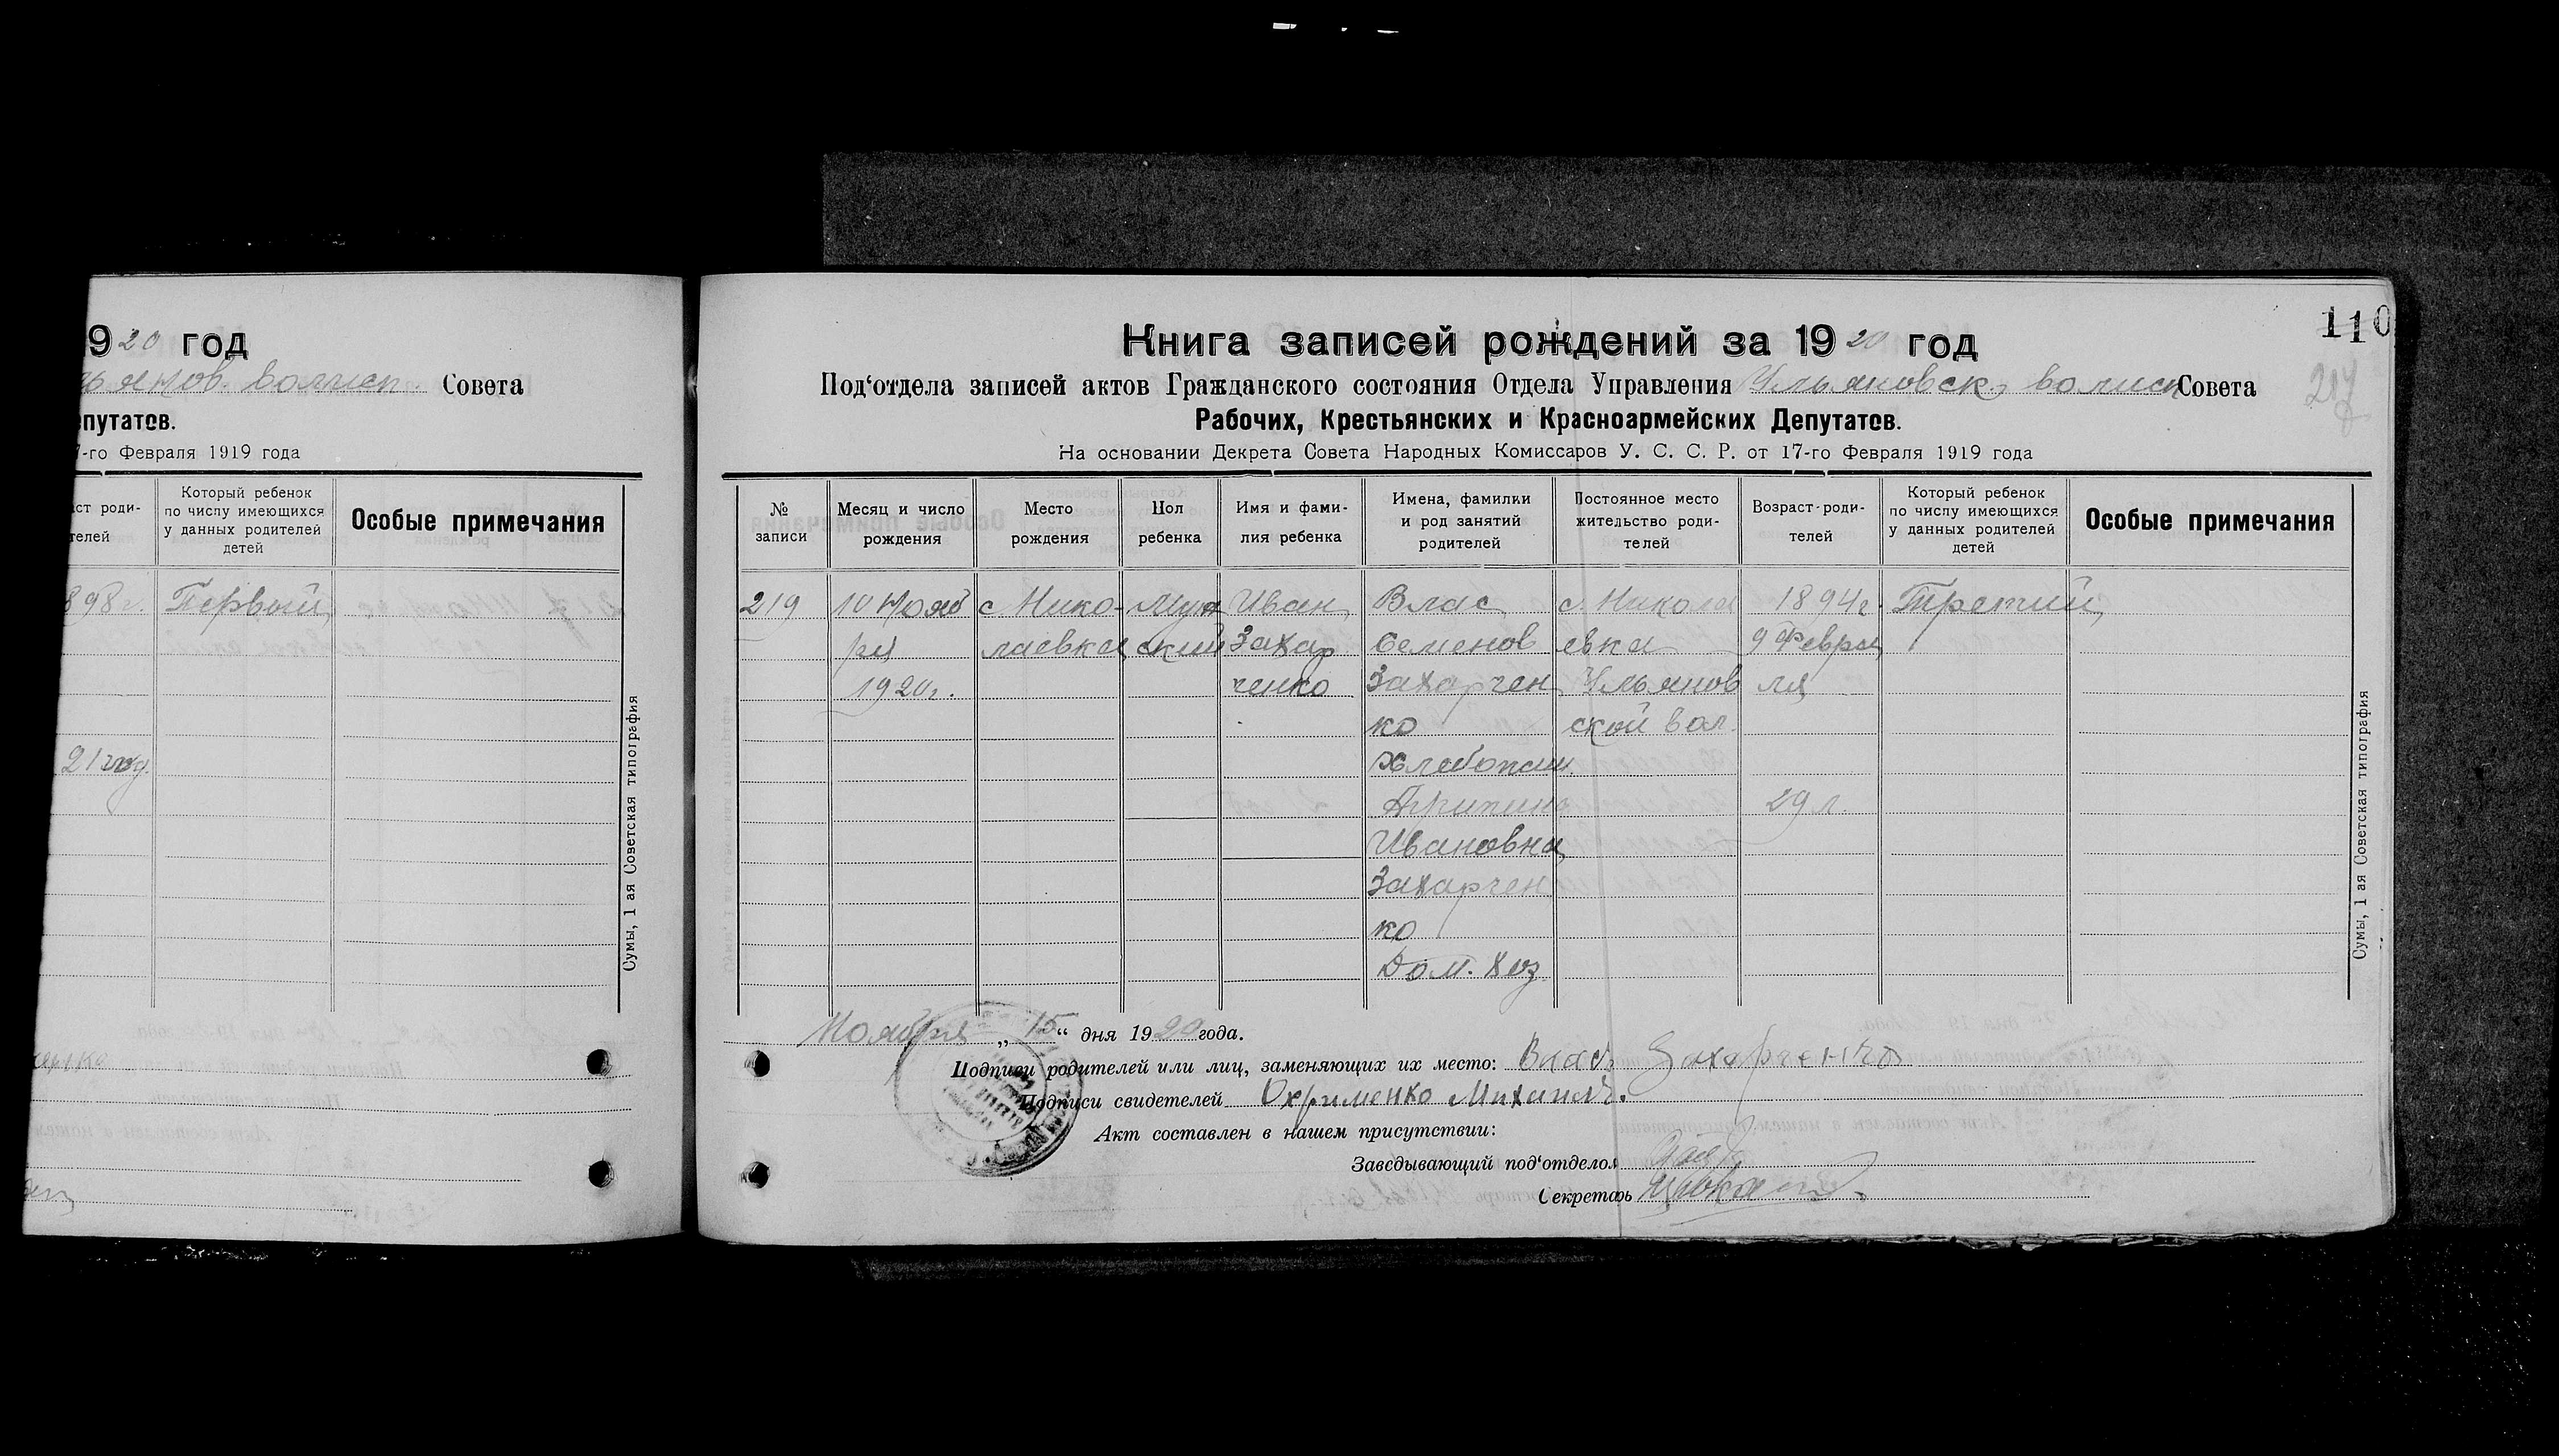 920 год
ьянов. волисп. Совета
епутатов.
7-го Февраля 1919 года
ст роди-
телей
Который ребенок
по числу имеющихся
у данных родителей
детей
Особые примечания
898г. Первый
21 год.
Сумы, 1 ая Советская типография
110
Книга записей рождений за 1920 год
Под‘отдела записей актов Гражданского состояния Отдела Управления Ульяновск. волисп Совета
Рабочих, Крестьянских и Красноармейских Депутатов.
На основании Декрета Совета Народных Комиссаров У. С. С. Р. от 17-го Февраля 1919 года
№
записи
Месяц и число
рождения
Место
рождения
Пол
ребенка
Имя и фами-
лия ребенка
Имена, фамилии
и род занятий
родителей
Постоянное место
жительство роди-
телей
Возраст роди-
телей
Который ребенок
по числу имеющихся
у данных родителей
детей
Особые примечания
219
10 Нояб
ря
1920г.
с. Нико-
лаевка
Муж
ский
Иван
Захар
ченко
Влас
Семенов
Захарчен
ко
хлебопаш.
Агрипина
Ивановна
Захарчен
ко
Дом. Хоз.
с. Никола
евка
Ульянов
ской вол.
1894г.
9 Февра
ля
29 л.
Третий
Сумы, 1 ая Советская типография
Ноября „15“ дня 1920 года.
Подписи родителей или лиц, заменяющих их место: Влас Захарченко
Подписи свидетелей Охрименко Михаилъ.
Акт составлен в нашем присутствии:
Заведывающий под‘отделом
Секретарь